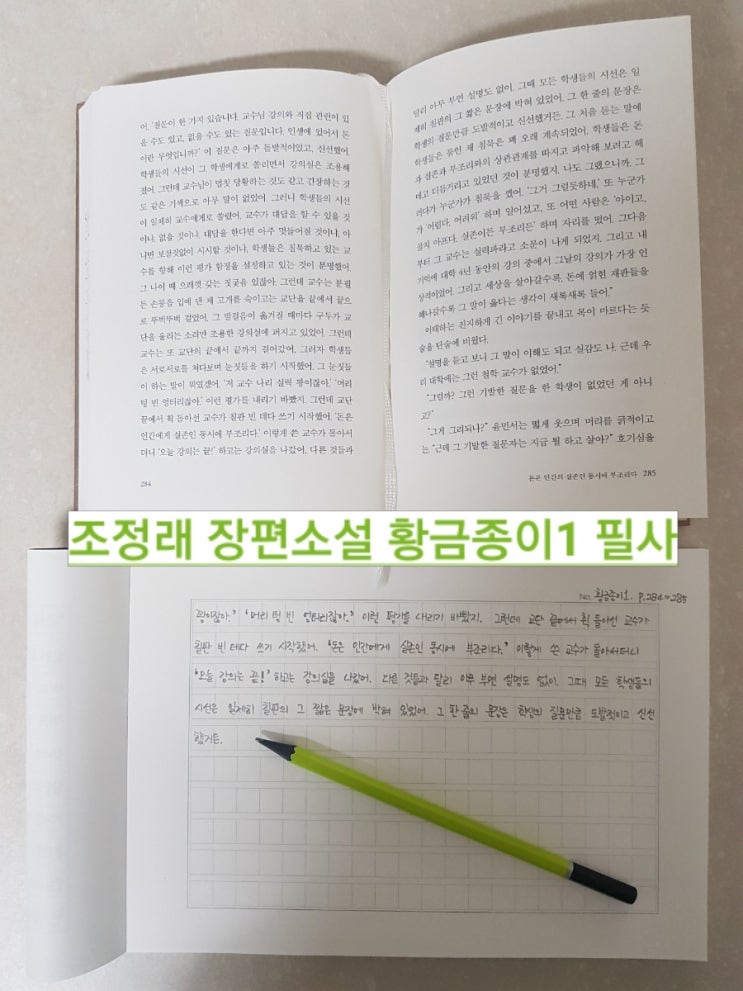 이, '질문이 한 가지 있습니다. 교수님 강의와 직접 관련이 있
을 수도 있고, 없을 수도 있는 질문입니다. 인생에 있어서 돈
이란 무엇입니까?' 이 질문은 아주 돌발적이었고, 신선했어.
학생들의 시선이 그 학생에게로 쏠리면서 강의실은 조용해
졌어. 그런데 교수님이 멈칫 당황하는 것도 같고 긴장하는 것
도 같은 기색으로 아무 말이 없었어. 그러니 학생들의 시선
이 일제히 교수에게로 쏠렸어. 교수가 대답을 할 수 있을 것
이냐, 없을 것이냐, 대답을 한다면 아주 멋들어질 것이냐, 아
니면 보잘것없이 시시할 것이냐, 학생들은 침묵하고 있는 교
수를 향해 이런 평가 함정을 설정하고 있는 것이 분명했어.
그 나이 때 으레껏 갖는 짓궂음 있잖아. 그런데 교수는 분필
든 손등을 입에 댄 채 고개를 숙이고는 교단을 끝에서 끝으
로 뚜벅뚜벅 걸었어. 그 발걸음이 옮겨질 때마다 구두가 교
단을 울리는 소리만 조용한 강의실에 퍼지고 있었어. 그런데
교수는 또 교단의 끝에서 끝까지 걸어갔어. 그러자 학생들
은 서로서로를 쳐다보며 눈짓들을 하기 시작했어. 그 눈짓들
이 하는 말이 뭐였겠어. '저 교수 나리 실력 꽝이잖아.' '머리
텅 빈 엉터리잖아.' 이런 평가를 내리기 바빴지. 그런데 교단
끝에서 획 돌아선 교수가 칠판 빈 데다 쓰기 시작했어. '돈은
인간에게 실존인 동시에 부조리다.' 이렇게 쓴 교수가 돌아서
더니 '오늘 강의는 끝!' 하고는 강의실을 나갔어. 다른 것들과
284
달리 아무 부연 설명도 없이. 그때 모든 학생들의 시선은 일
제히 칠판의 그 짧은 문장에 박혀 있었어. 그 한 줄의 문장은
학생의 질문만큼 도발적이고 신선했거든. 그 처음 듣는 말에
학생들은 묶인 채 침묵은 꽤 오래 계속되었어. 학생들은 돈
과 실존과 부조리와의 상관관계를 따지고 파악해 보려고 헤
매고 더듬거리고 있었던 것이 분명했지. 나도 그랬으니까. 그
러다가 누군가가 침묵을 깼어. '그거 그럴듯하네.' 또 누군가
가 '어렵다, 어려워' 하며 일어섰고, 또 어떤 사람은 '아이고,
골치 아프다. 실존이든 부조리든' 하며 자리를 떴어. 그다음
부터 그 교수는 실력파라고 소문이 나게 되었지. 그리고 내
기억에 대학 4년 동안의 강의 중에서 그날의 강의가 가장 인
상적이었어. 그리고 세상을 살아갈수록, 돈에 얽힌 재판들을
해나갈수록 그 말이 옳다는 생각이 새록새록 들어."
이태하는 진지하게 긴 이야기를 끝내고 목이 마르다는 듯
술을 단숨에 비웠다.
"설명을 듣고 보니 그 말이 이해도 되고 실감도 나. 근데 우
리 대학에는 그런 철학 교수가 없었어."
"그럴까? 그런 기발한 질문을 한 학생이 없었던 게 아니
고?"
"그게 그리되나?" 윤민서는 멀게 웃으며 머리를 긁적이고
는, "근데 그 기발한 질문자는 지금 뭘 하고 살아?" 호기심을
돈은 인간의 실존인 동시에 부조리다 285
조정래 장편소설 황금종이1 필사
No. 황금종이1. P.284~285
꽝이잖아.' '머리 텅 빈 엉터리잖아.' 이런 평가를 내리기 바빴지. 그런데 교단 끝에서 획 돌아선 교수가
칠판 빈 데다 쓰기 시작했어. '돈은 인간에게 실존인 동시에 부조리다.' 이렇게 쓴 교수가 돌아서더니
'오늘 강의는 끝!' 하고는 강의실을 나갔어. 다른 것들과 달리 아무 부연 설명도 없이. 그때 모든 학생들의
시선은 일제히 칠판의 그 짧은 문장에 박혀 있었어. 그 한 줄의 문장은 학생의 질문만큼 도발적이고 신선
했거든.